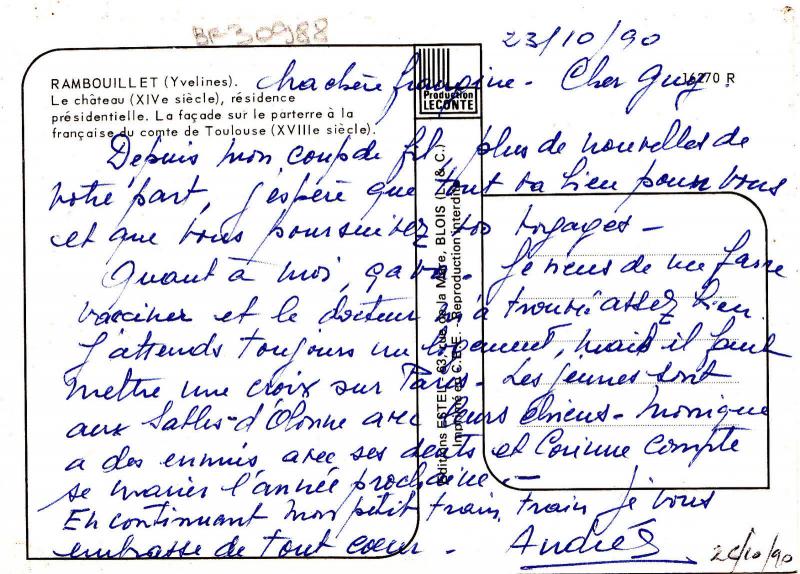 BF30988
23/10/90
RAMBOUILLET (Yvelines).
Le château (XIVe siècle), résidence
présidentielle. La façade sur le parterre à la
française du comte de Toulouse (XVIIIe siècle).
Production
LECONTE
16270 R
Ma chère Françoine. Cher Guy.
Depuis mon coup de fil, plus de nouvelles de
votre part, j'espère que tout va bien pour vous
et que vous poursuivez vos voyages -
Quant à moi, ça va. Je viens de me faire
vacciner et le docteur m'a trouvé assez bien.
J'attends toujours un logement, mais il faut
mettre une croix sur Paris. Les jeunes sont
aux Sables-d'Olonne avec leurs chiens - Monique
a des ennuis avec ses dents et Corinne compte
se marier l'année prochaine. -
En continuant mon petit train, train je vous
embrasse de tout cœur - Andrée
Editions ESTEL, 63, rue de la Mare, BLOIS (L. & C.)
Imprimé en C.E.E. - Reproduction interdite